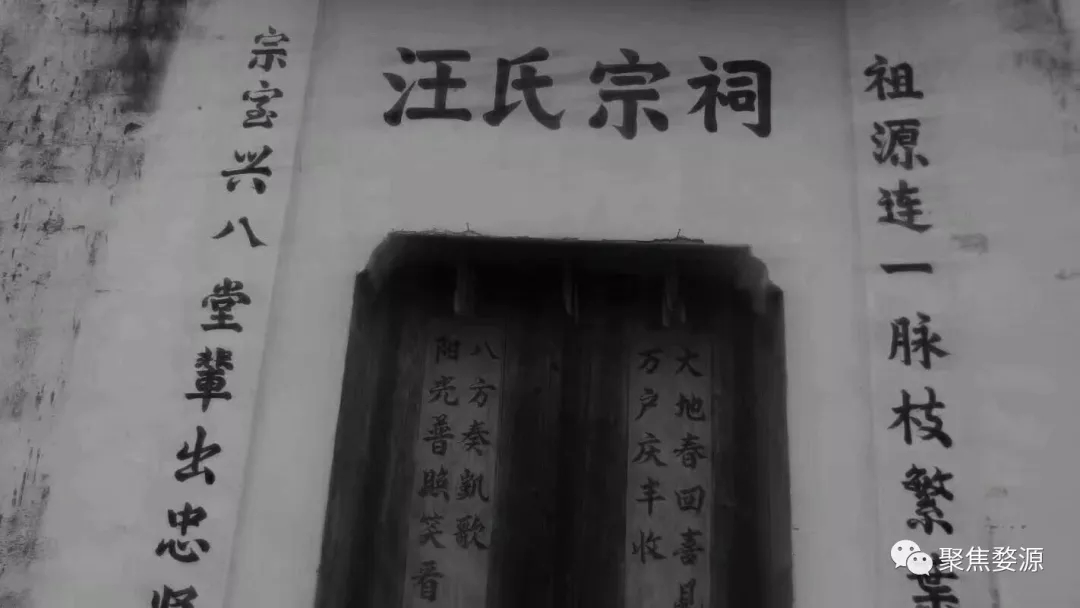 汪氏宗祠
祖源连一脉枝繁葉
宗室兴八堂輩出忠贤
大地春回喜見
万户庆丰收
八方奏凱歌
阳光普照笑看
聚焦婺源